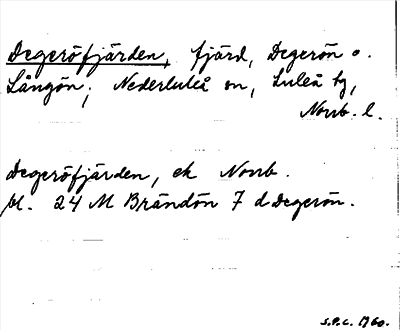 Degeröfjärden, fjärd, Degerön o.
Långön; Nederluleå sn, Luleå tg,
Norrb. l.
Degeröfjärden, ek Norrb.
bl. 24 M Brändön 7 d Degerön.
S.P.C. 1960.